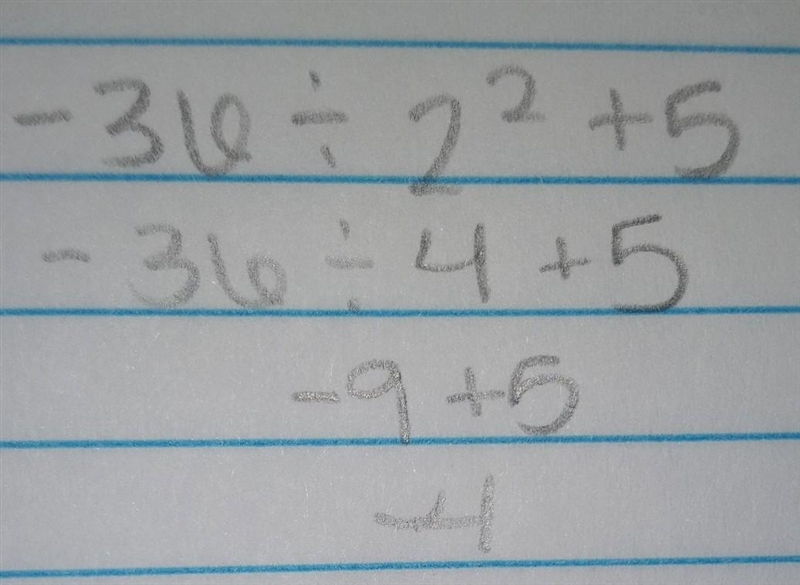 -36 ÷ 2² + 5
-36 ÷ 4 + 5
-9 + 5
-4